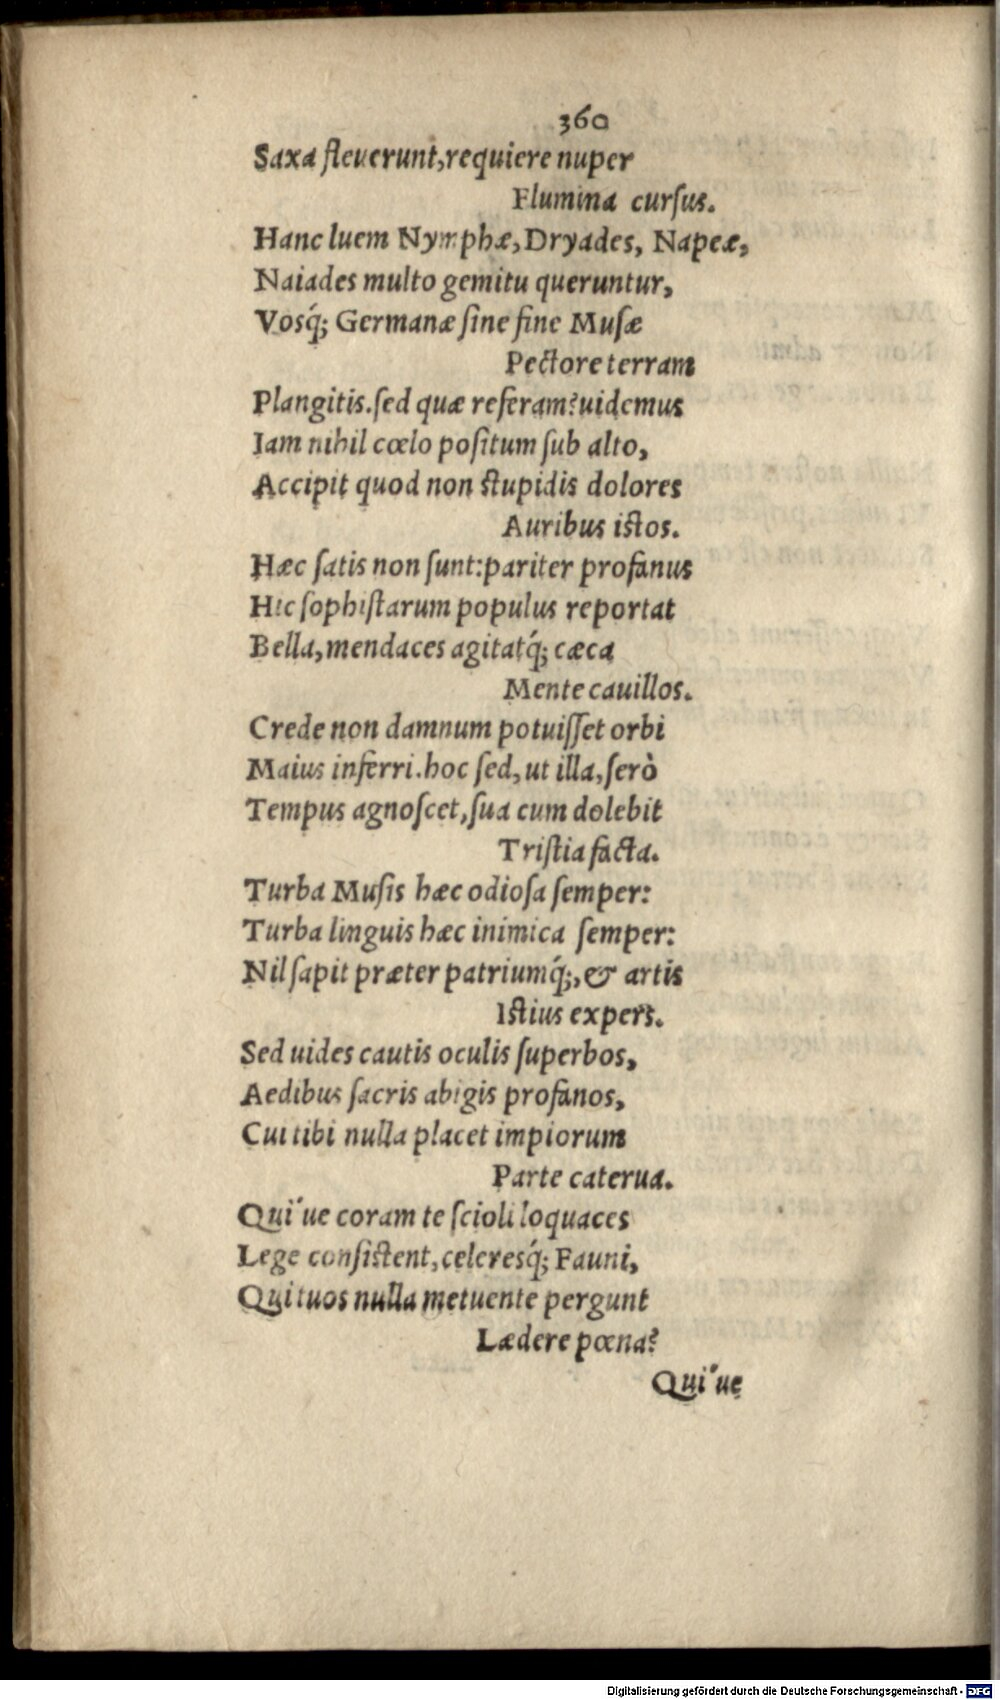 360
Saxa fleuerunt, requiere nuper
Flumina cursus.
Hanc luem Nymphæ, Dryades, Napeæ,
Naiades multo gemitu queruntur,
Vosq́; Germanæ sine fine Musæ
Pectore terram
Plangitis. sed quæ referam? uidemus
Iam nihil cœlo positum sub alto,
Accipit quod non stupidis dolores
Auribus istos.
Hæc satis non sunt: pariter profanus
Hic sophistarum populus reportat
Bella, mendaces agitatq́; cæca
Mente cauillos.
Crede non damnum potuisset orbi
Maius inferri. hoc sed, ut illa, serò
Tempus agnoscet, sua cum dolebit
Tristia facta.
Turba Musis hæc odiosa semper:
Turba linguis hæc inimica semper:
Nil sapit præter patriumq́;, & artis
Istius expers.
Sed uides cautis oculis superbos,
Aedibus sacris abigis profanos,
Cui tibi nulla placet impiorum
Parte caterua.
Qui'ue coram te scioli loquaces
Lege consistent, celeresq́; Fauni,
Qui tuos nulla metuente pergunt
Lædere pœna?
Qui'ue
Digitalisierung gefördert durch die Deutsche Forschungsgemeinschaft - DFG